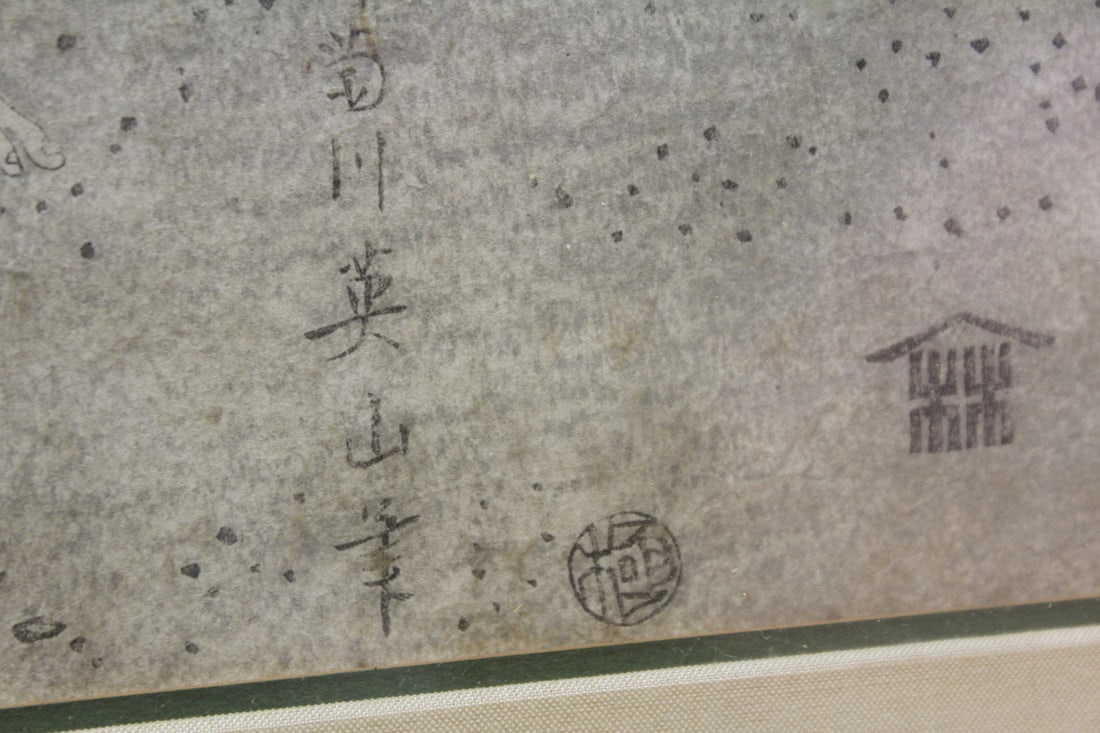 菊川英山筆
極